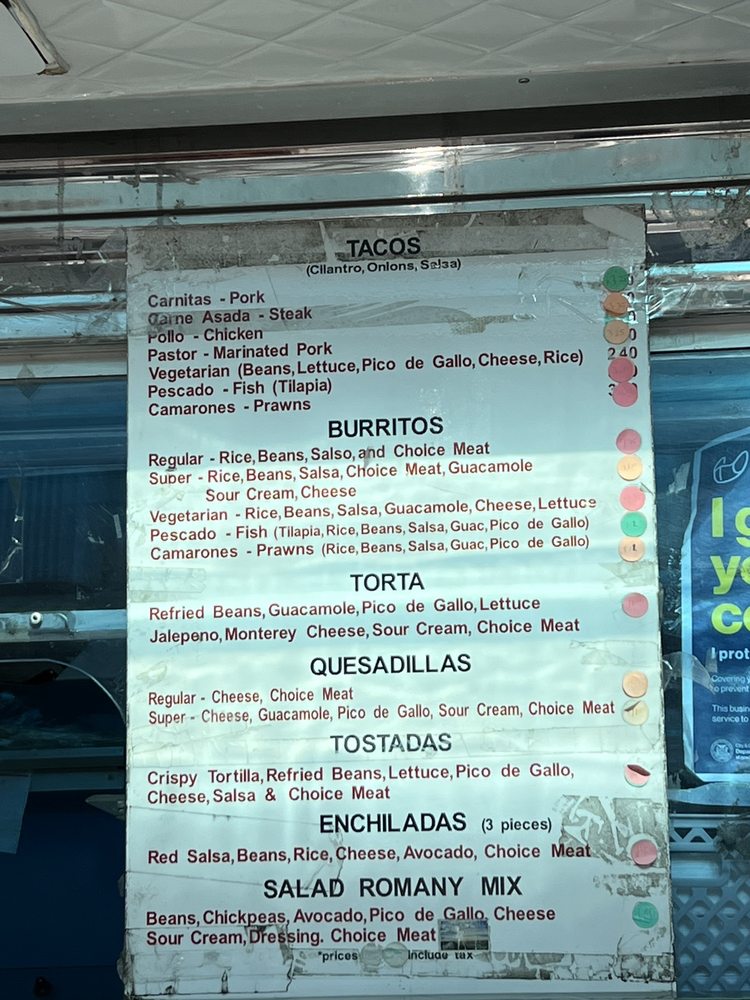 TACOS
(Cilantro, Onlons, Salsa)
Carnitas - Pork
Carne Asada - Steak
Pollo - Chicken
Pastor - Marinated Pork 2.40
Vegetarian (Beans, Lettuce, Pico de Gallo, Cheese, Rice)
Pescado - Fish (Tilapia)
Camarones - Prawns
BURRITOS
Regular - Rice, Beans, Salso, and Choice Meat
Super - Rice, Beans, Salsa, Choice Meat, Guacamole
Sour Cream, Cheese
Vegetarian - Rice, Beans, Salsa, Guacamole, Cheese, Lettuce
Pescado - Fish (Tilapia, Rice, Beans, Salsa, Guac, Pico de Gallo)
Camarones - Prawns (Rice, Beans, Salsa, Guac, Pico de Gallo)
TORTA
Refried Beans, Guacamole, Pico de Gallo, Lettuce
Jalepeno, Monterey Cheese, Sour Cream, Choice Meat
QUESADILLAS
Regular - Cheese, Choice Meat
Super - Cheese, Guacamole, Pico de Gallo, Sour Cream, Choice Meat
TOSTADAS
Crispy Tortilla, Refried Beans, Lettuce, Pico de Gallo,
Cheese, Salsa & Choice Meat
ENCHILADAS (3 pieces)
Red Salsa, Beans, Rice, Cheese, Avocado, Choice Meat
SALAD ROMANY MIX
Beans, Chickpeas, Avocado, Pico de Gallo, Cheese
Sour Cream, Dressing. Choice Meat
*prices include tax
I
I prot
Covering
to prevent
This busin
service to